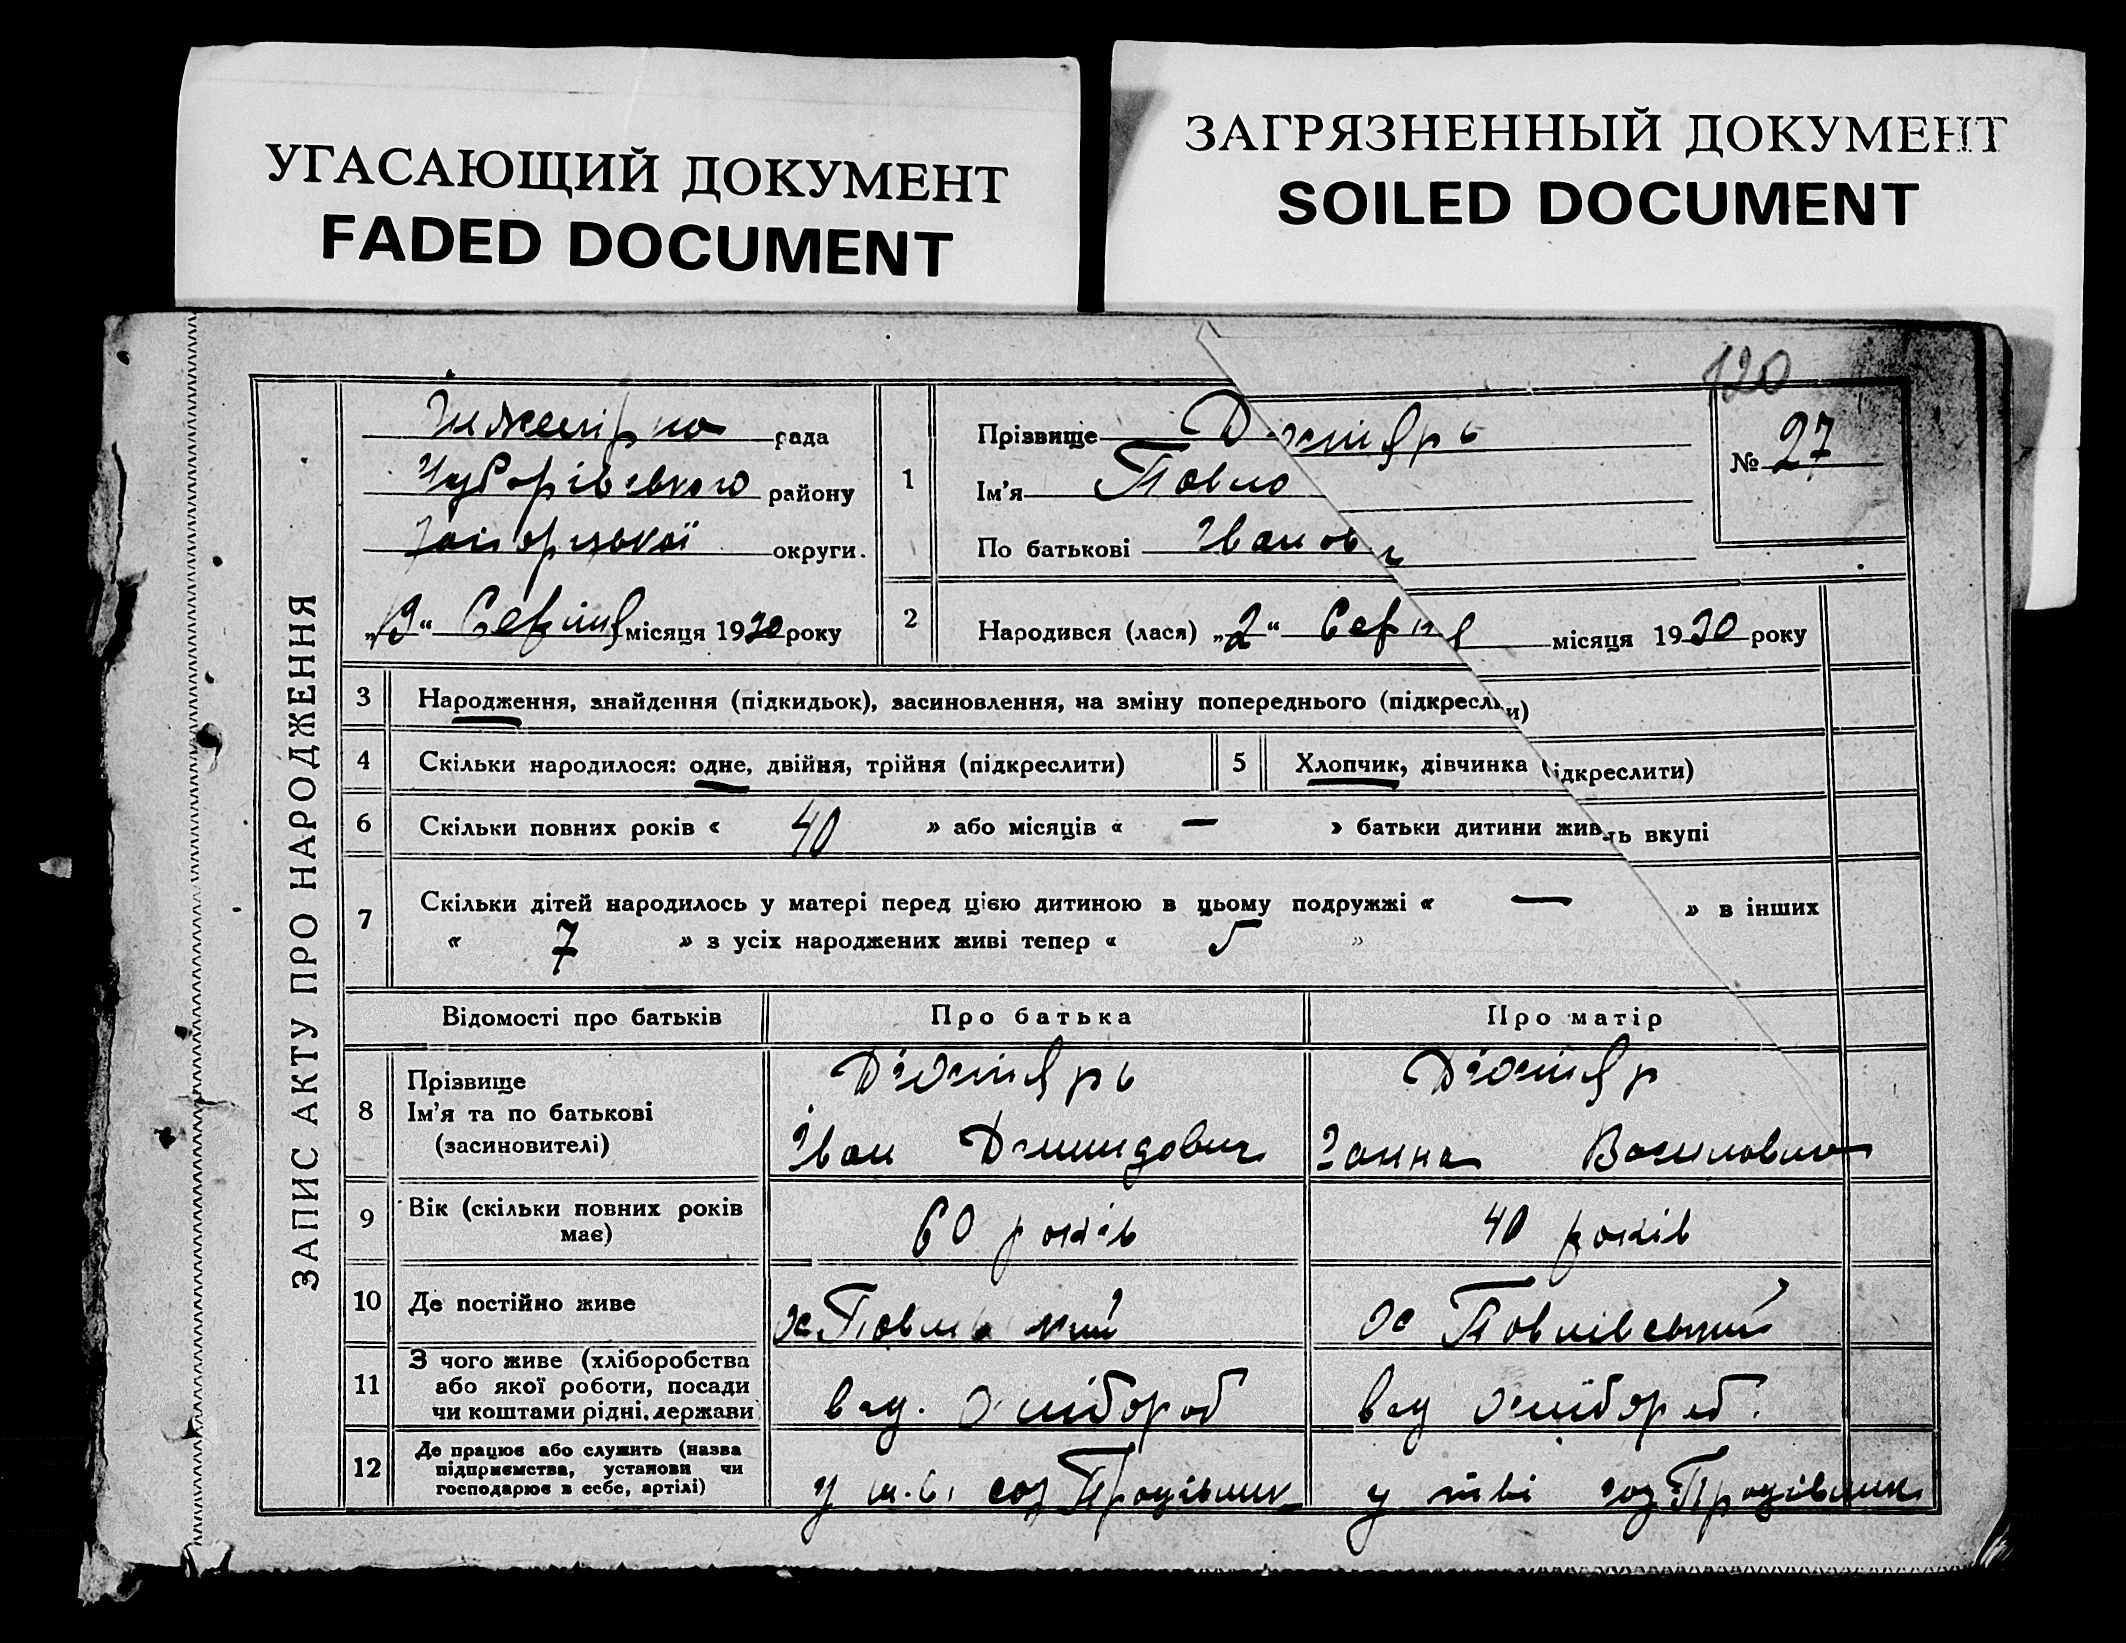 УГАСАЮЩИЙ ДОКУМЕНТ
FADED DOCUMENT
ЗАГРЯЗНЕННЫЙ ДОКУМЕНТ
SOILED DOCUMENT
120
ЗАПИС АКТУ ПРО НАРОДЖЕННЯ
рада
району
округи.
„19“ Серпня місяця 1930 року
1
Прізвище
Ім'я Павло
По батькові Іванов
№ 27
2
Народився (лася) „2“ Серпня місяця 1930 року
3 Народження, знайдення (підкидьок), засиновлення, на зміну попереднього (підкреслити)
4 Скільки народилося: одне, двійня, трійня (підкреслити)
5 Хлопчик, дівчинка (підкреслити)
6 Скільки повних років « 40 » або місяців « — » батьки дитини живуть вкупі
7 Скільки дітей народилось у матері перед цією дитиною в цьому подружжі « — » в інших
« 7 » з усіх народжених живі тепер « 5 »
Відомості про батьків
Про батька
Про матір
8
Прізвище
Ім'я та по батькові
(засиновителі)
Іван
Ганна Василовна
9 Вік (скільки повних років
має)
60 років
40 років
10 Де постійно живе
х Павлівський
х Павлівський
11
З чого живе (хліборобства
або якої роботи, посади
чи коштами рідні, держави
хлібороб
хлібороб.
12
Де працює або служить (назва
підприємства, установи чи
господарює в себе, артілі)